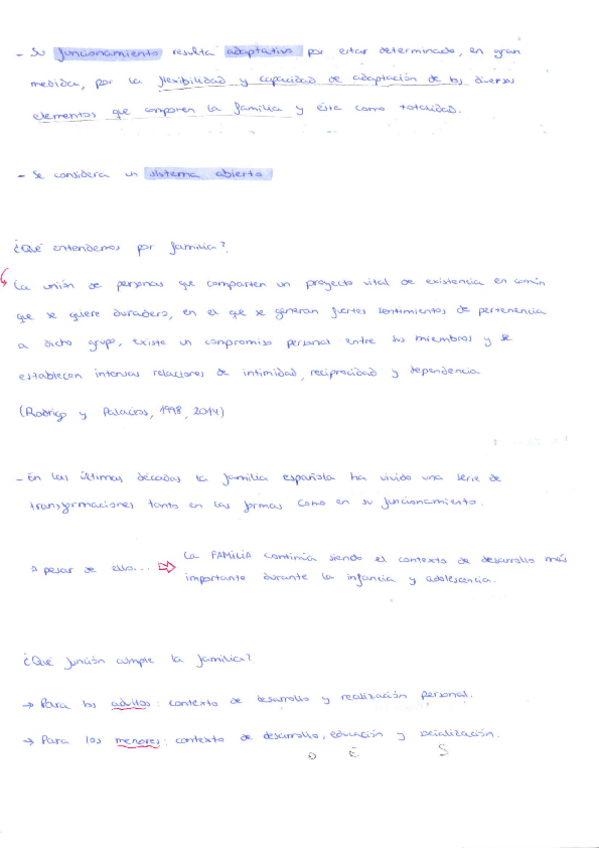 - Su funcionamiento resulta adaptativo por estar determinado, en gran
medida, por la flexibilidad y capacidad de adaptación de los diversos
elementos que componen la familia y ésta como totalidad.
- Se considera un sistema abierto
¿Qué entendemos por familia?
La unión de personas que comparten un proyecto vital de existencia en común
que se quiere duradero, en el que se generan fuertes sentimientos de pertenencia
a dicho grupo, existe un compromiso personal entre sus miembros y se
establecen intensas relaciones de intimidad, reciprocidad y dependencia
(Rodrigo y Palacios, 1998, 2014)
- En las últimas décadas la familia española ha vivido una serie de
transformaciones tanto en las formas como en su funcionamiento.
a pesar de ello... ⇒ La FAMILIA continúa siendo el contexto de desarrollo más
importante durante la infancia y adolescencia.
¿Qué función cumple la familia?
→ Para los adultos: contexto de desarrollo y realización personal.
→ Para los menores: contexto de desarrollo, educación y socialización.
D E S